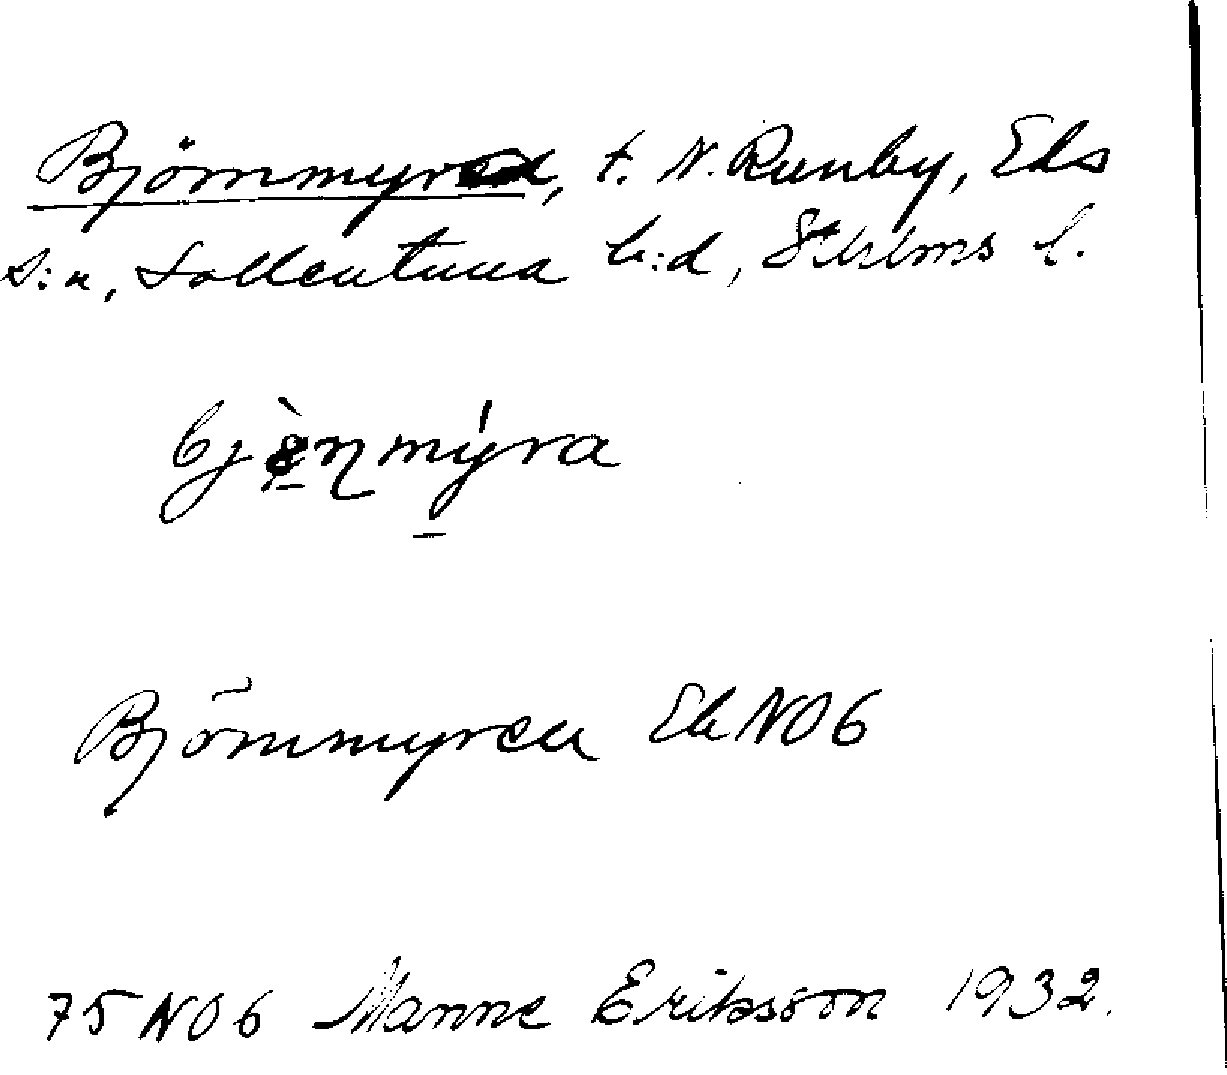 Björnmyran, t. N. Runby, Eds
s:n, Sollentuna h:d, Sthlms l.
Björnmyren Ek NO6
75 NO6 Manne Eriksson 1932.